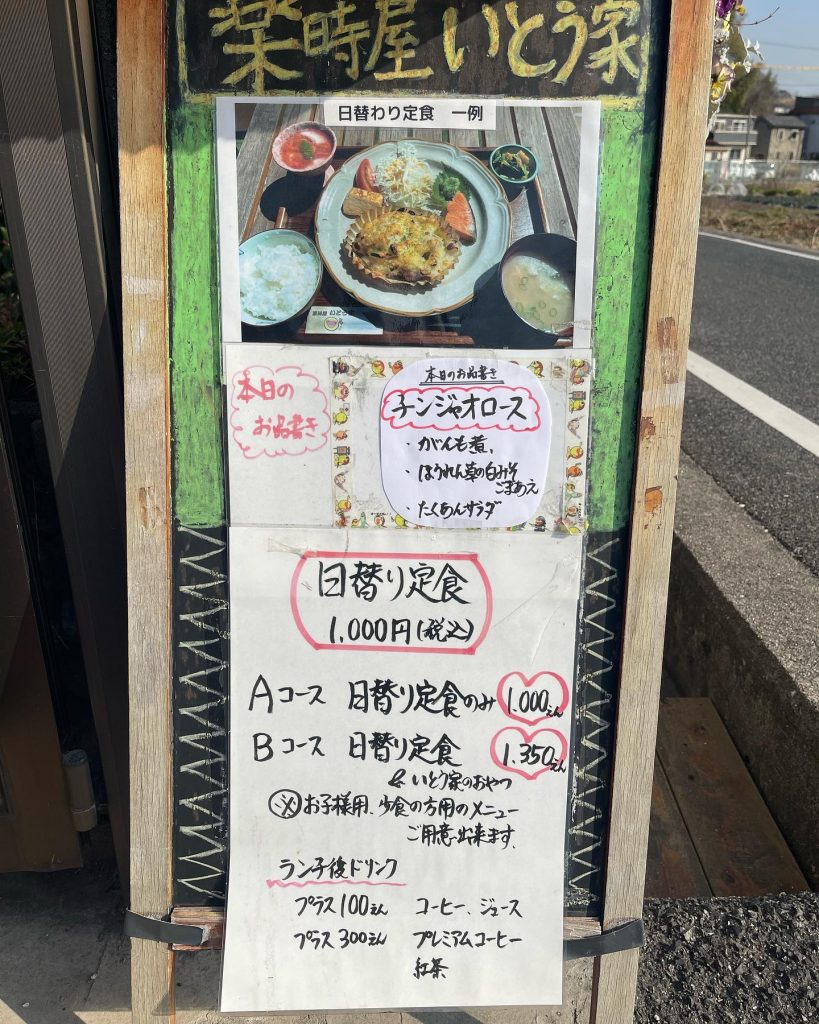 楽時屋 いとう家
日替わり定食　一例
楽時屋 いとう家
本日の
お品書き
本日のお品書き
チンジャオロース
・がんも煮、
・ほうれん草の白みそ
ごまあえ
・たくあんサラダ
日替り定食
1,000円(税込)
Aコース 日替り定食のみ 1.000えん
Bコース 日替り定食 1.350えん
& いとう家のおやつ
※お子様用、少食の方用のメニュー
ご用意出来ます.
ランチ後ドリンク
プラス100えん コーヒー、ジュース
プラス300えん プレミアムコーヒー
紅茶